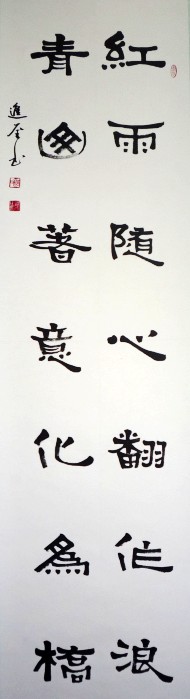 紅雨随心翻作浪
青山著意化為橋
進 书